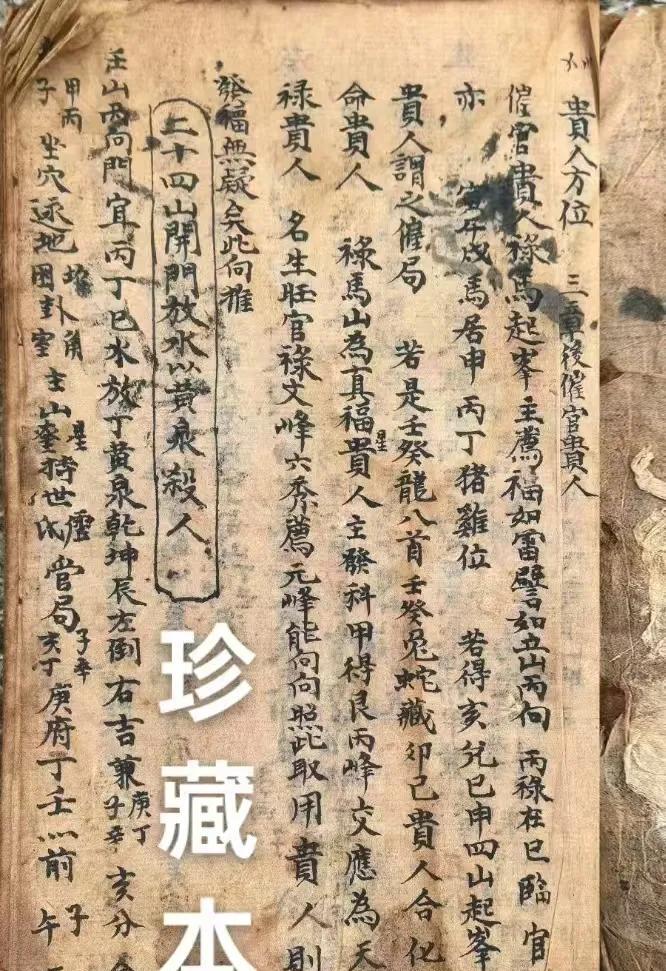 貴人方位　三章後催官貴人
催官貴人祿馬起峯主薦福如雷譬如立山丙向　丙祿在巳臨官
亦　寅午戌馬居申丙丁猪雞位　若得亥兌巳申四山起峯
貴人謂之催局　若是壬癸龍入首壬癸兔蛇藏卯巳貴人合化
命貴人　祿馬山為真福星貴人主發科甲得艮丙峰交應為天
祿貴人　名生旺官祿文峰六秀薦元峰能向向照此取用貴人則
發福無疑矣此向推
二十四山開門放水以黃泉殺人
壬山丙向門宜丙丁巳水放丁黃泉乾坤辰左倒右吉兼庚丁子辛亥分
甲丙子坐穴逐地圖卦主山
庚府丁壬以前子午
珍藏本